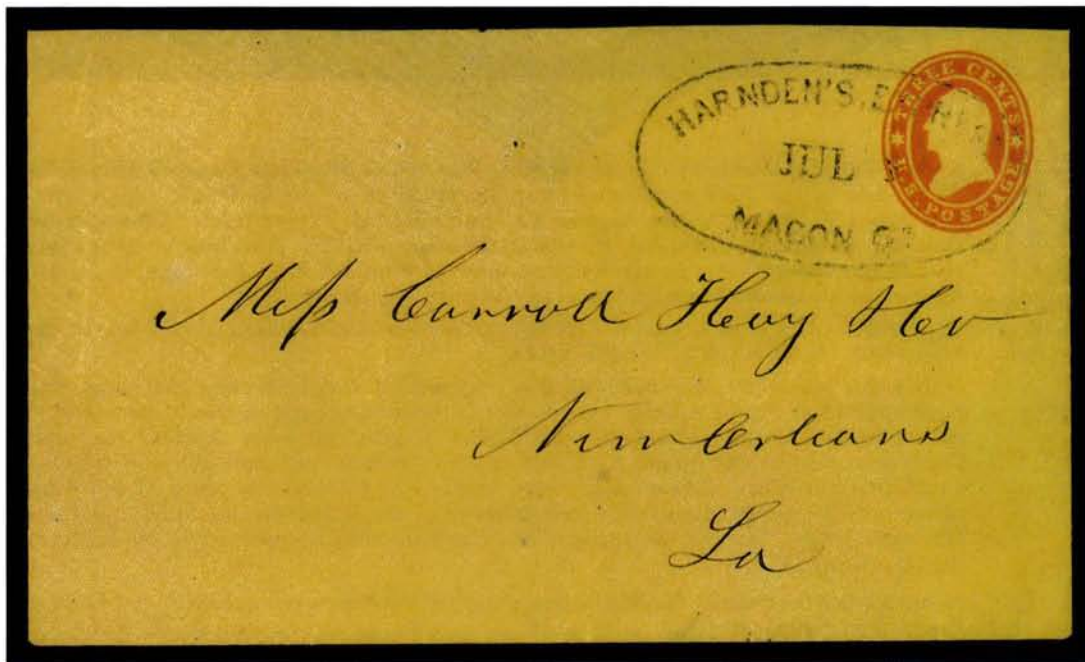 HARNDEN'S EXPRESS
JUL
MACON Ga
THREE CENTS
U.S. POSTAGE
Mess Carroll Hoy & Co
New Orleans
La